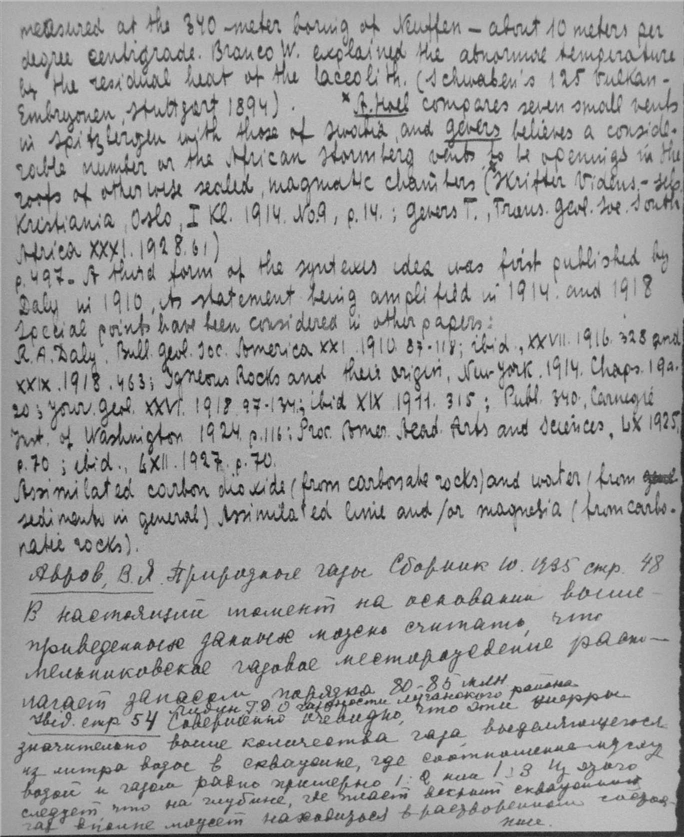 measured at the 340-meter boring of Neuffen – about 10 meters per
degree centigrade. Branco W. explained the abnormal temperature
by the residual heat of the laccolith. (Schwaben's 125 Vulkan-
Embryonen, Stuttgart 1894). *A. Hoel compares seven small vents
in Spitzbergen with those of Swabia and Gevers believes a conside-
rable number or the African Stormberg vents to be openigs in the
roofs of otherwise sealed, magmatic chambers (Skrifter Videns.-
Kristiania, Oslo, I Kl. 1914. No.9, p.14.; Gevers T., Trans. Geol. Soc. South
Africa XXXI. 1928. 61)
p. 497. A third form of the syntexis idea was first published by
Daly in 1910, its statement being amplified in 1914 and 1918
Special points have been considered in other papers:
R.A. Daly, Bull. Geol. Soc. America XXI. 1910. 87-118; ibid., XXVII. 1916. 328 and
XXIX. 1918. 463; Igneous Rocks and their origin, New-York. 1914. Chaps. 19a-
20; Jour. Geol. XXVI. 1918. 97-134; ibid XIX 1911. 315; Publ. 340, Carnegie
Inst. of Washington 1924 p.116; Proc. Amer. Acad. Arts and Sciences, LX 1925,
p. 70; ibid., LXII. 1927. p. 70.
Assimilated carbon dioxide (from carbonate rocks) and water (from
sediments in general) Assimilated lime and/or magnesia (from carbo-
natic rocks).
Авров, В.Я. Природные газы Сборник 10. 1935 стр. 48
В настоящий момент на основании выше-
приведенных данных можно считать, что
мельниковское газовое месторождение распо-
лагает запасом порядка 80-85 млн
Глубин Г.Д. О газоности луганского района
Ibid. стр 54 Совершенно очевидно, что эти цифры
значительно выше количества газа выделяющегося
из литра воды в скважине, где соотношение между
водой и газом равно примерно 1:2 или 1:3 Из этого
следует что на глубине, где пласт вскрыт скважиной
газ вполне может находиться в растворенном состоя-
нии.